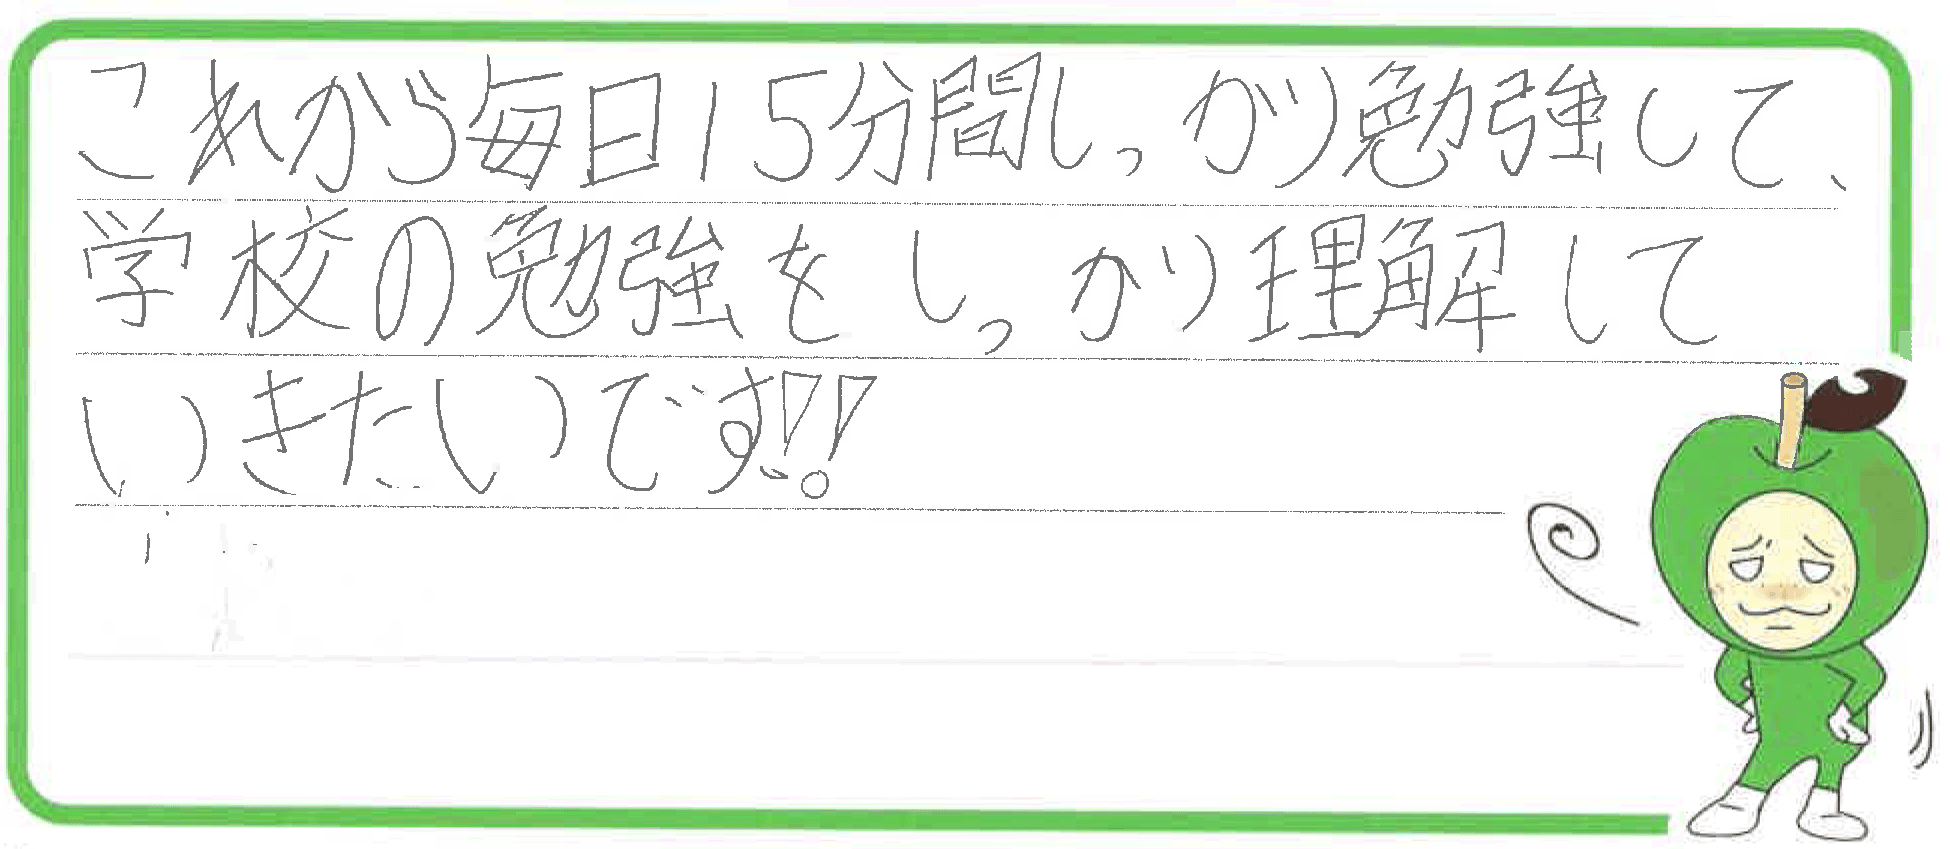 これから毎日15分間しっかり勉強して、
学校の勉強をしっかり理解して
いきたいです!!